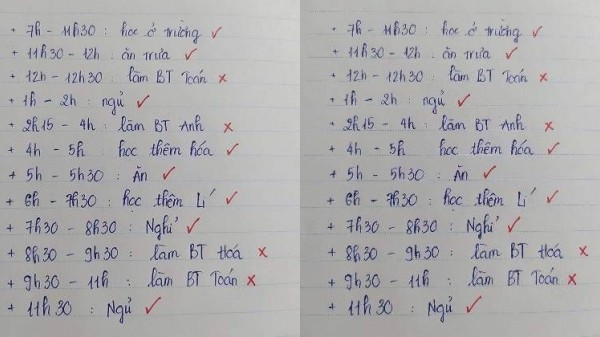 + 7h - 11h30 : học ở trường ✓
+ 11h30 - 12h : ăn trưa ✓
+ 12h - 12h30 : làm BT Toán x
+ 1h - 2h : ngủ ✓
+ 2h15 - 4h : làm BT Anh x
+ 4h - 5h học thêm hóa ✓
+ 5h - 5h30 : Ăn ✓
+ 6h - 7h30 : học thêm Lí ✓
+ 7h30 - 8h30 : Nghỉ ✓
+ 8h30 - 9h30 : làm BT Hoá x
+ 9h30 - 11h : làm BT Toán x
+ 11h30 : Ngủ ✓
+ 7h - 11h30 : học ở trường ✓
+ 11h30 - 12h : ăn trưa ✓
+ 12h - 12h30 : làm BT Toán x
+ 1h - 2h : ngủ ✓
+ 2h15 - 4h : làm BT Anh x
+ 4h - 5h học thêm hóa ✓
+ 5h - 5h30 : Ăn ✓
+ 6h - 7h30 : học thêm Lí ✓
+ 7h30 - 8h30 : Nghỉ ✓
+ 8h30 - 9h30 : làm BT Hoá x
+ 9h30 - 11h : làm BT Toán x
+ 11h30 : Ngủ ✓